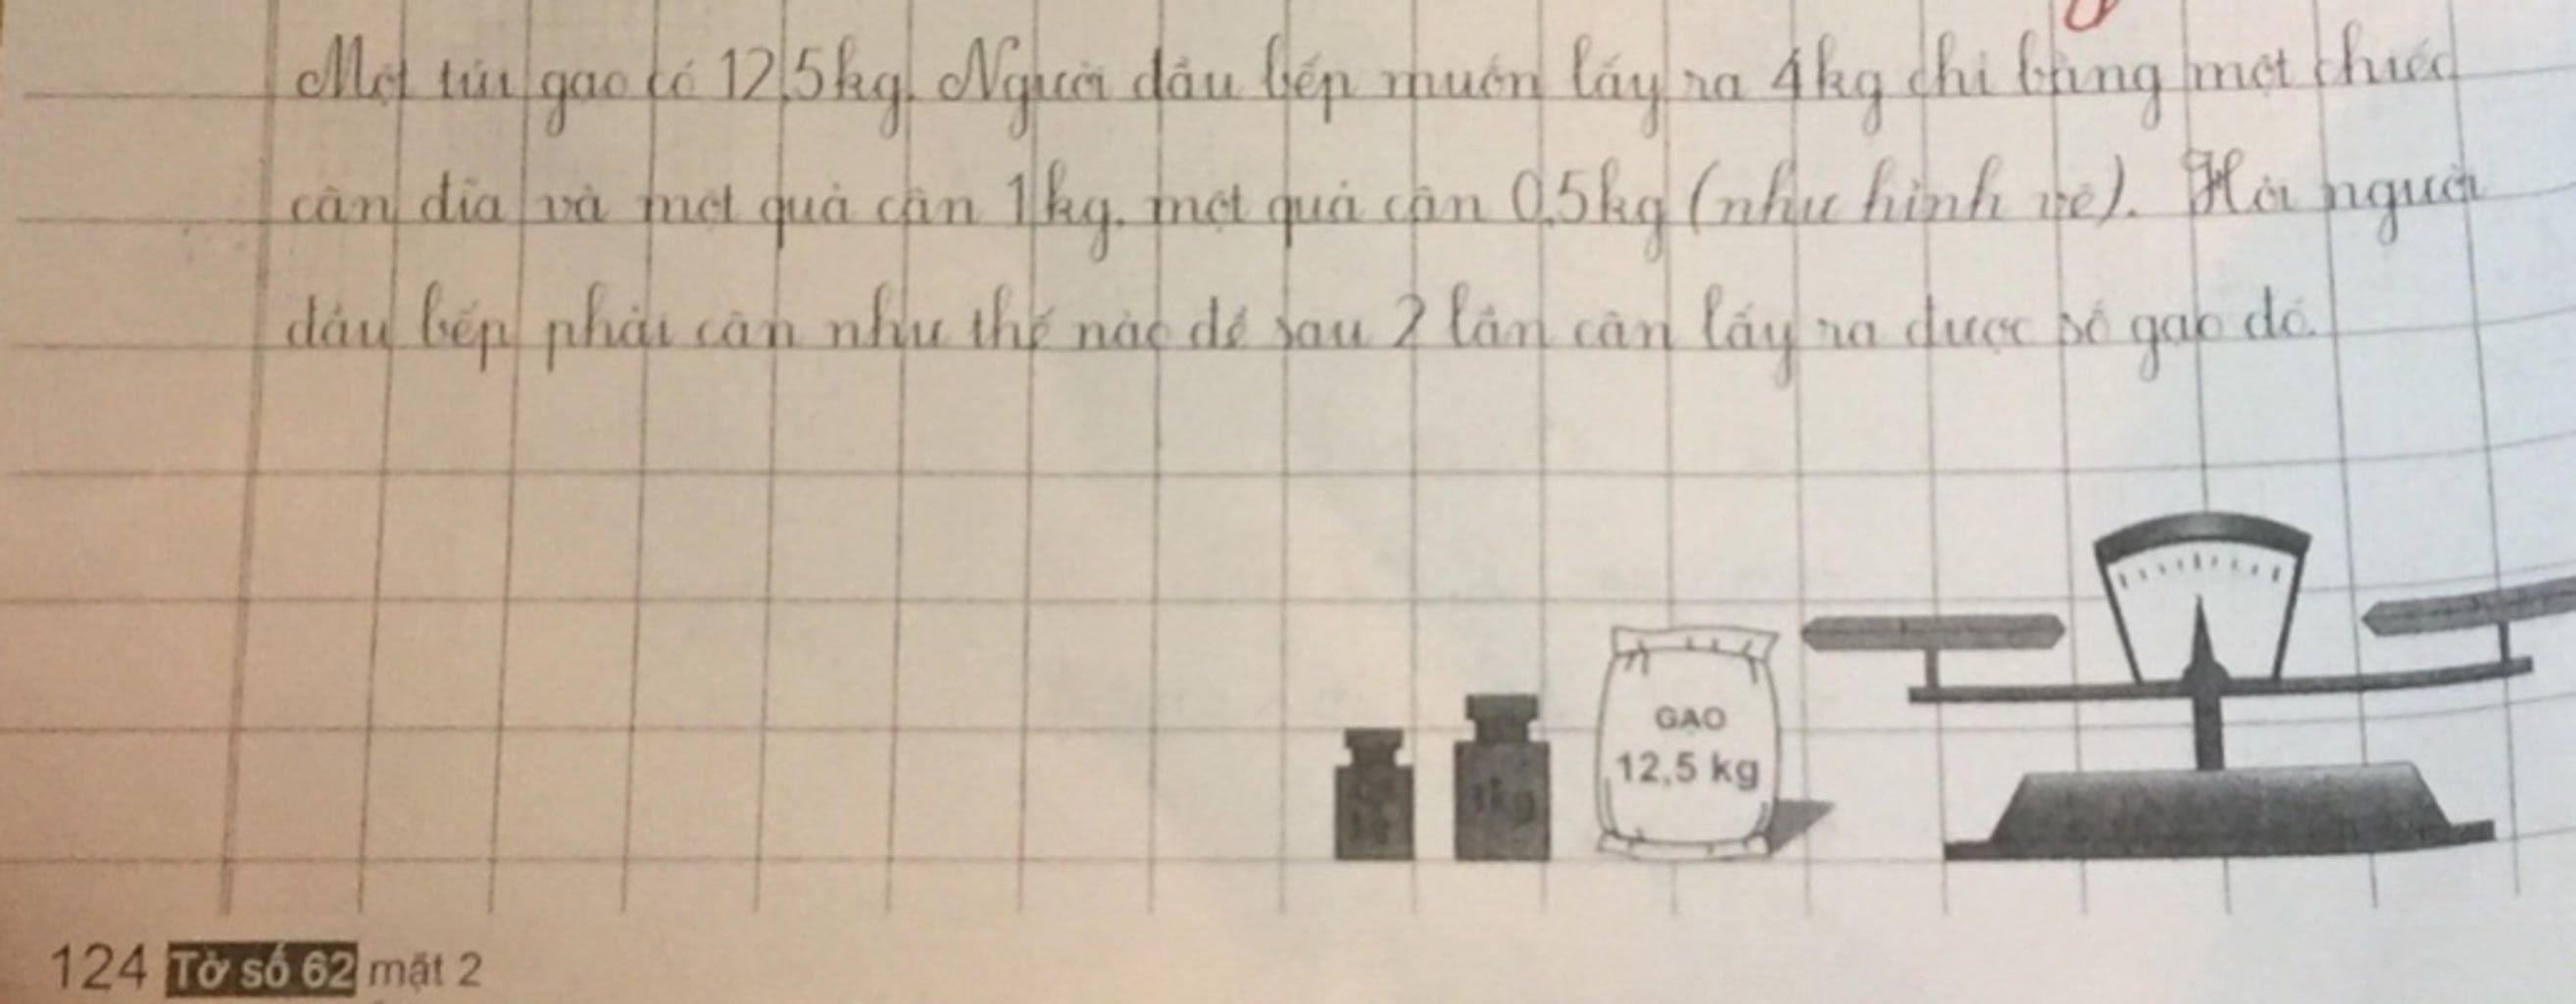 Một túi gạo có 12,5kg. Người đầu bếp muốn lấy ra 4kg chỉ bằng một chiếc
cân đĩa và một quả cân 1kg, một quả cân 0,5kg (như hình vẽ). Hỏi người
đầu bếp phải cân như thế nào để sau 2 lần cân lấy ra được số gạo đó.
GẠO
12,5 kg
1kg
124 Tờ số 62 mặt 2